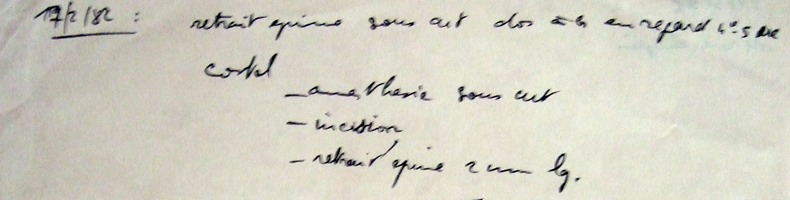 17/2/82 : retrait épine sous cut dos en regard 4e 5
costal
- anesthésie sous cut
- incision
- retrait épine 2 mm lg.